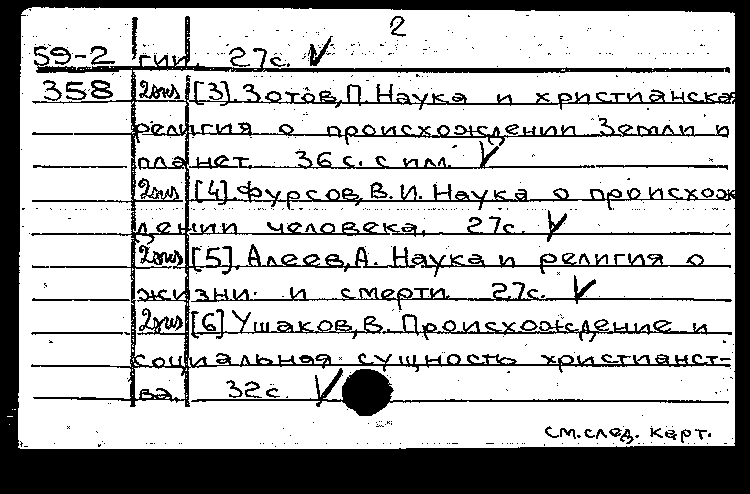 2
59-2 гии. 27с. V
358 2экз [3]. Зотов, П. Наука и христианская
религия о происхождении Земли и
планет. 36 с. с илл. V
2экз [4]. Фурсов, В. И. Наука о происхож
дении человека. 27с. V
2экз [5]. Алеев, А. Наука и религия о
жизни и смерти. 27с. V
2экз [6] Ушаков, В. Происхождение и
социальная сущность христианст-
ва. 32с. V
см. след. карт.